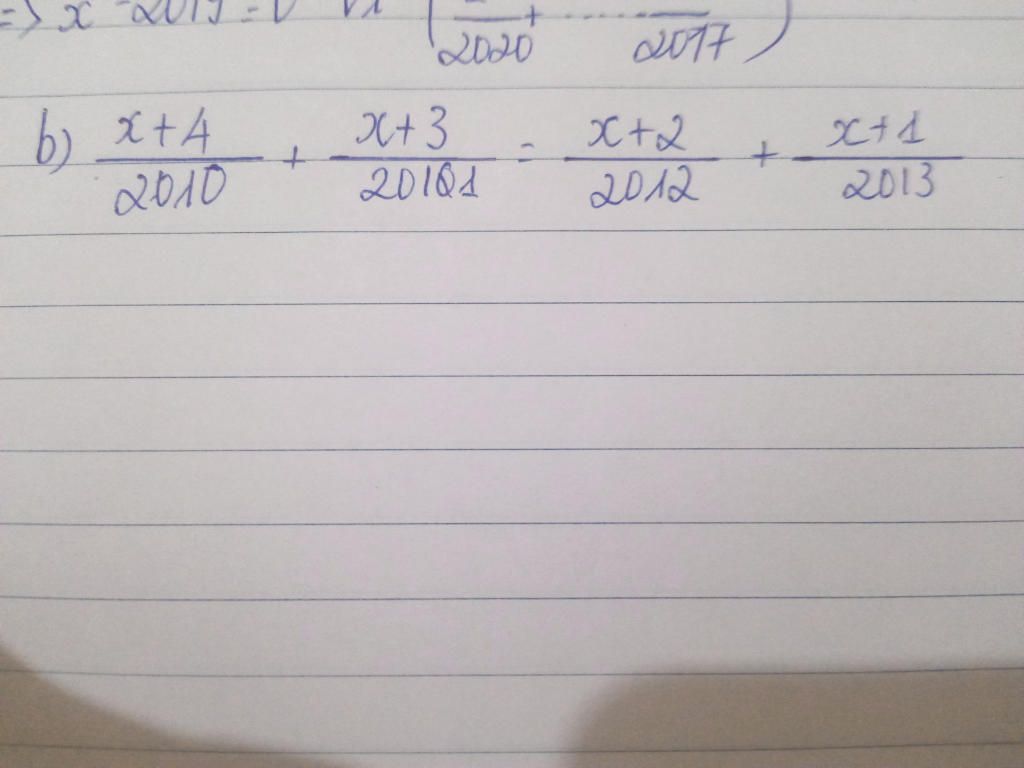 => x - 2019 = 0 Vì ( — + ...... —
2020 2017 )
b) x+4 / 2010 + x+3 / 20101 = x+2 / 2012 + x+1 / 2013